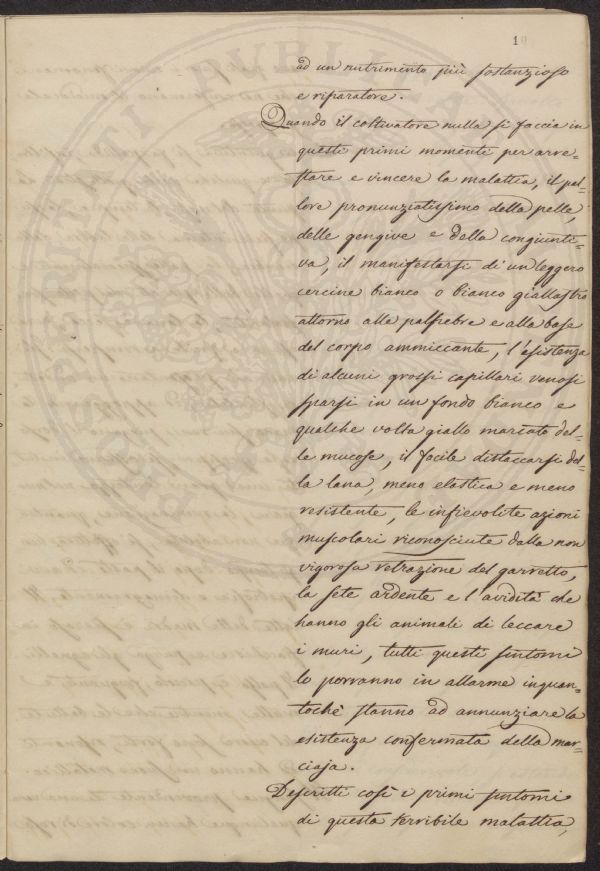 10
ad un nutrimento più sostanzioso
e riparatore.
Quando il coltivatore nulla si faccia in
questi primi momenti per arre=
stare e vincere la malattia, il pal=
lore pronunziatissimo della pelle,
delle gengive e della congiunti=
va, il manifestarsi di un leggero
cercine bianco o bianco giallastro
attorno alle palpebre e alla base
del corpo ammiccante, l'esistenza
di alcuni grossi capillari venosi
sparsi in un fondo bianco e
qualche volta giallo marcato del=
le mucose, il facile distaccarsi del=
la lana, meno elastica e meno
resistente, le infievolite azioni
muscolari riconosciute dalla non
vigorosa retrazione del garretto,
la sete ardente e l'avidità che
hanno gli animali di leccare
i muri, tutti questi sintomi
lo porranno in allarme inquan=
tochè stanno ad annunziare la
esistenza confermata della mar=
ciaja.
Descritti così i primi sintomi
di questa terribile malattia,